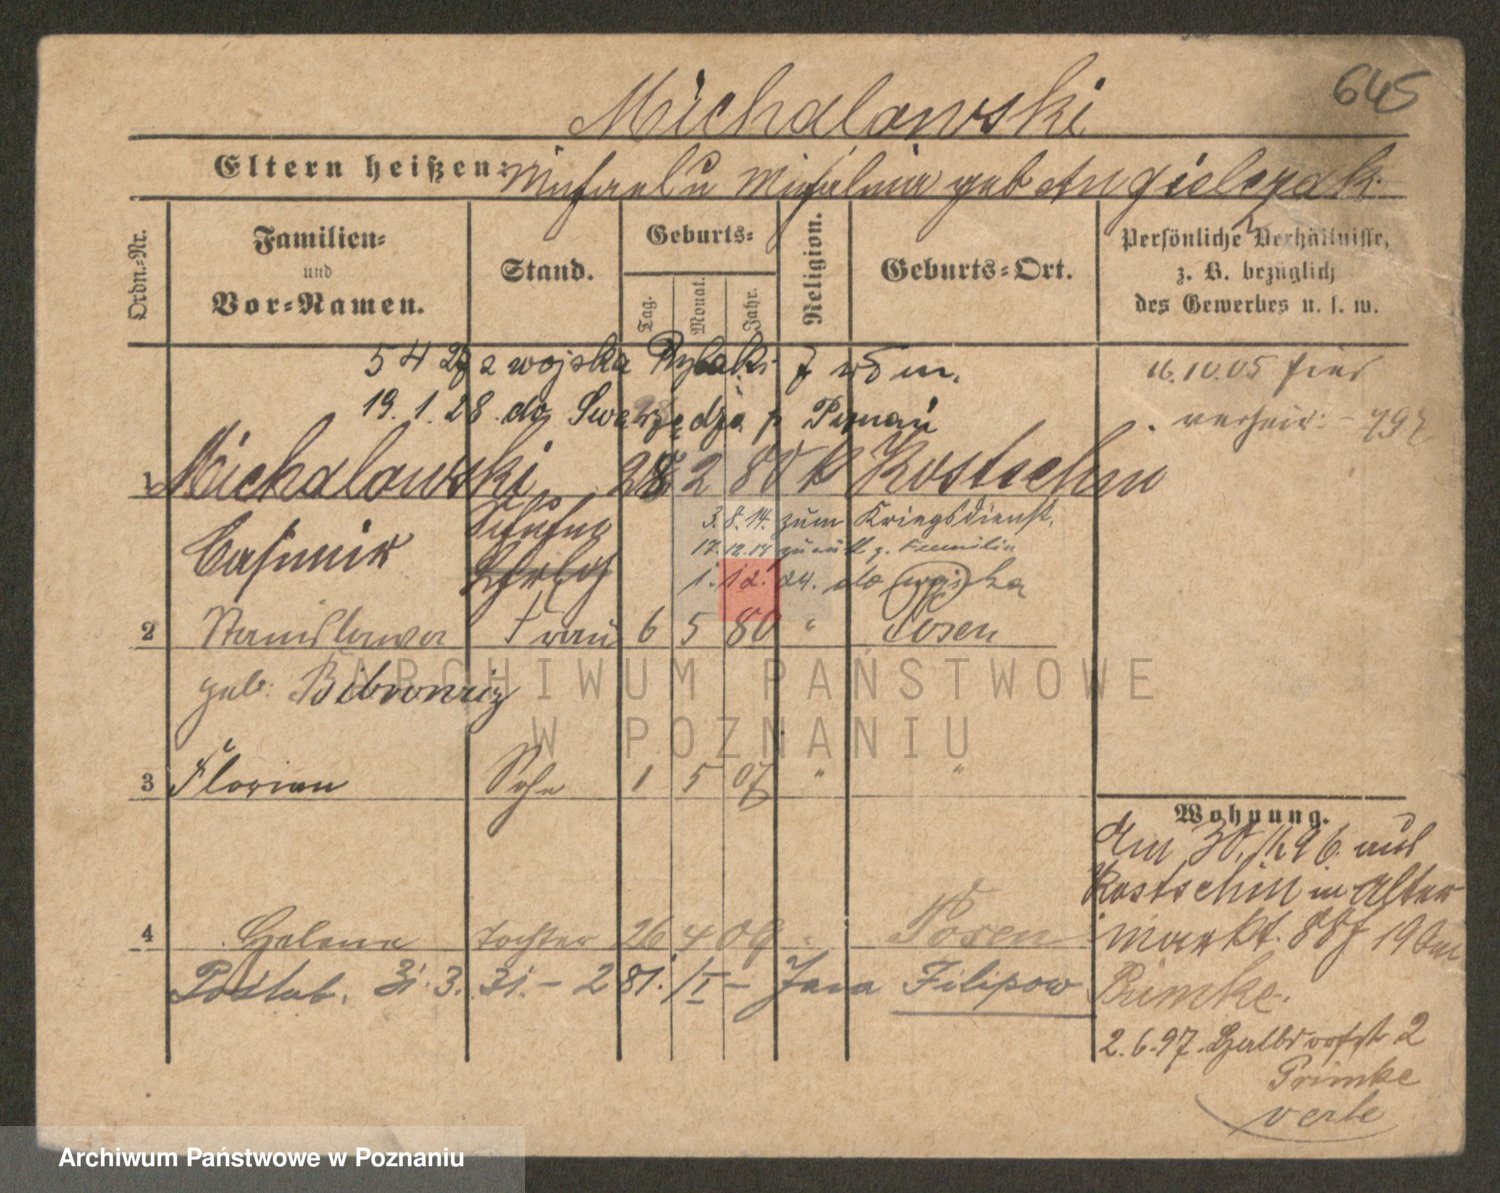 645
Michalowski
Eltern heißen: Michael u Michalina geb Angielczak.
Ordn.-Nr.
Familien-
und
Vor-Namen.
Stand.
Geburts-
Tag.
Monat.
Jahr.
Religion.
Geburts-Ort.
Persönliche Verhältnisse,
z. B. bezüglich
des Gewerbes u. s. w.
5 4 27 z wojska
19. 1. 28. do Swarzędza p Poznań
16.10.05 hier
verheir: - 797
1 Michalowski 28 2 80 k Kostschin
Casimir
3. 8. 14. zum Kriegsdienst.
17. 12. 18 zurück z. Familie
1. 12. 24. do wojska
2 Stanislawa Frau 6 5 80 " Posen
geb.
3 Florian Sohn 1 5 07 " "
Wohnung.
Am 30. 96. aus
Kostschin in Alter
Markt. 88 19 bei
Primke.
4 Helene Tochter 26 4 09 " Posen
31. 3. 31. - 281. /I - Jana Filipow
2. 6. 97. Halbdorfstr 2
Primke
verte
ARCHIWUM PAŃSTWOWE
W POZNANIU
Archiwum Państwowe w Poznaniu